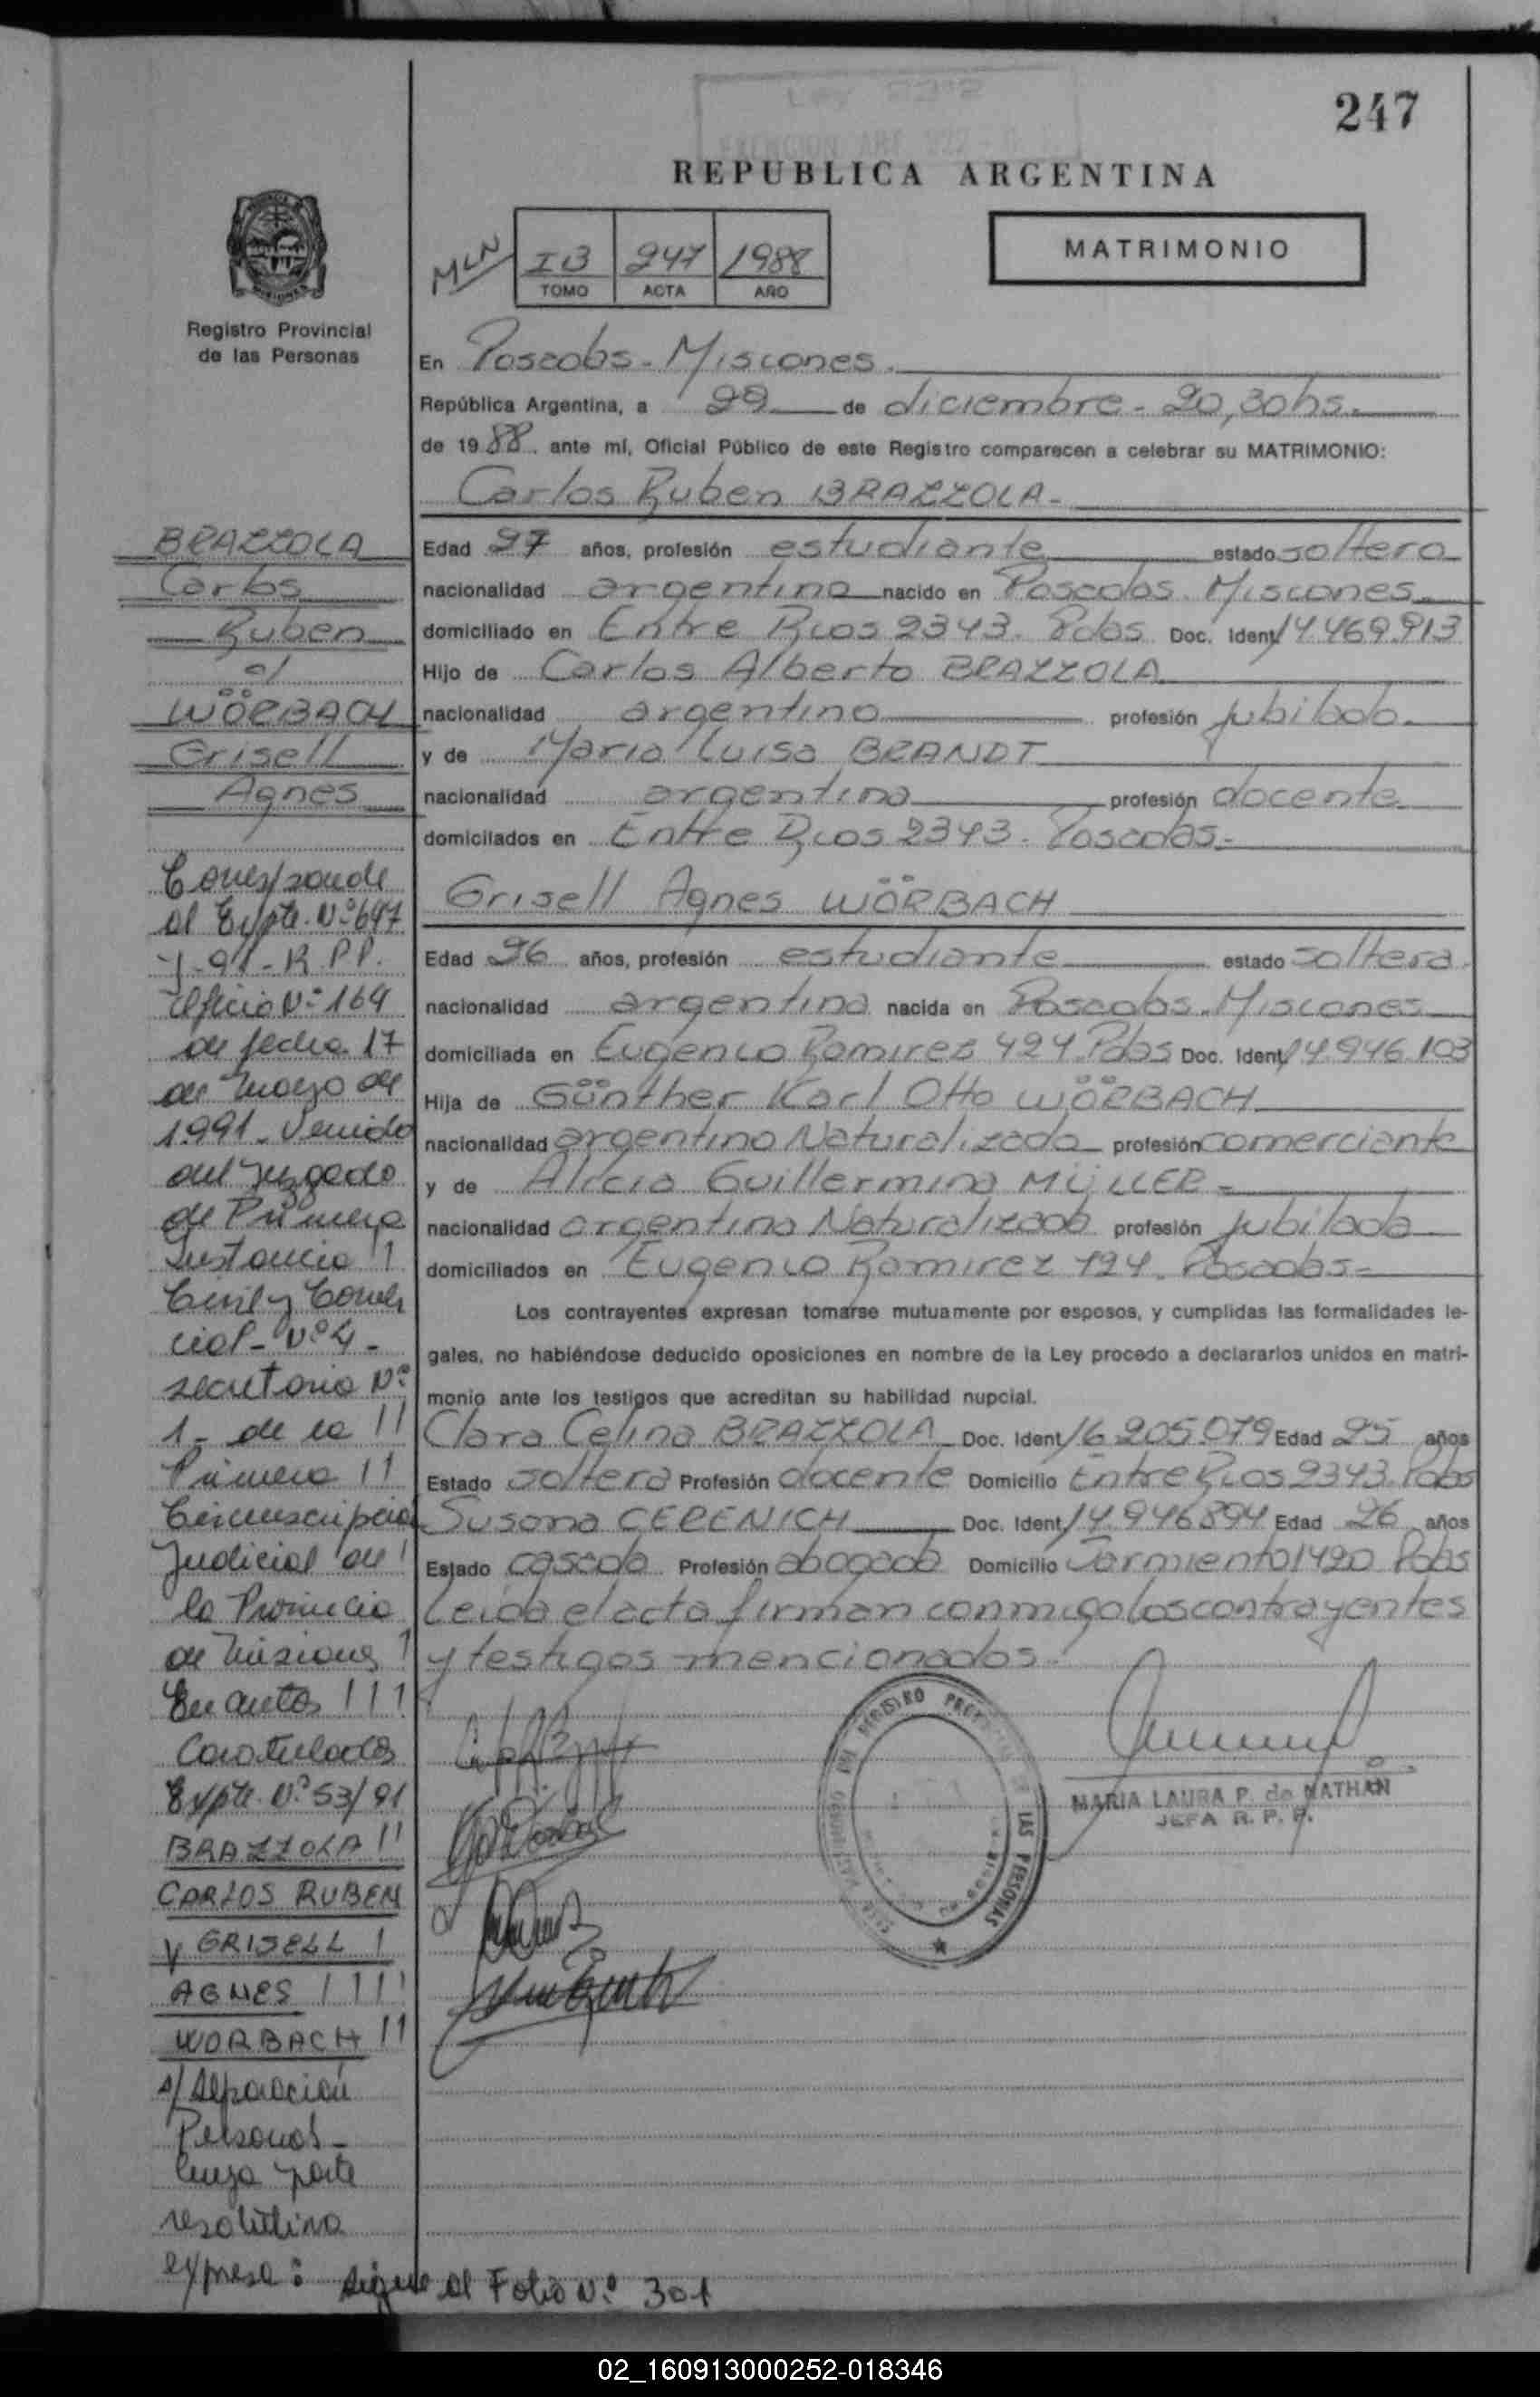 247
REPUBLICA ARGENTINA
MATRIMONIO
MLN
I3 247 1988
TOMO ACTA AÑO
Registro Provincial
de las Personas
En Posadas - Misiones.
República Argentina, a 29 de diciembre - 20,30hs.
de 1988. ante mí, Oficial Público de este Registro comparecen a celebrar su MATRIMONIO:
Carlos Ruben BRAZZOLA -
Edad 27 años, profesión estudiante estado soltero
nacionalidad argentino nacido en Posadas. Misiones.
domiciliado en Entre Rios 2343. Pdas Doc. Ident. 14.469.913
Hijo de Carlos Alberto BRAZZOLA
nacionalidad argentino profesión jubilado.
y de Maria Luisa BRANDT
nacionalidad argentina profesión docente
domicilados en Entre Rios 2343. Posadas.-
Grisell Agnes WÖRBACH
Edad 26 años, profesión estudiante estado soltera.
nacionalidad argentina nacida en Posadas. Misiones
domiciliada en Eugenio Ramirez 424 Pdas Doc. Ident. 14.946.103
Hija de Günther Karl Otto WÖRBACH
nacionalidad argentino Naturalizado profesión comerciante
y de Alicia Guillermina MÜLLER -
nacionalidad argentina Naturalizada profesión jubilada
domiciliados en Eugenio Ramirez 424. Posadas -
Los contrayentes expresan tomarse mutuamente por esposos, y cumplidas las formalidades le-
gales, no habiéndose deducido oposiciones en nombre de la Ley procedo a declararlos unidos en matri-
monio ante los testigos que acreditan su habilidad nupcial.
Clara Celina BRAZZOLA Doc. Ident. 16.205.079 Edad 25 años
Estado soltera Profesión docente Domicilio Entre Rios 2343. Pdas
Susana CERENICH Doc. Ident. 14.946.894 Edad 26 años
Estado casada Profesión abogada Domicilio Sarmiento 1420 Pdas
Leida el acta firman conmigo los contrayentes
y testigos mencionados.
MARIA LAURA P. de NATHAN
JEFA R. P. P.
BRAZZOLA
Carlos
Ruben
c/
WÖRBACH
Grisell
Agnes
Corresponde
al Expte. Nº 647
-J-91-R.P.P.
Oficio Nº 164
de fecha 17
de Marzo de
1991 - Venido
del Juzgado
de Primera
Instancia
Civil y Comer
cial - Nº 4 -
secretaria Nº
1 - de la
Primera
Circunscripción
Judicial de
la Provincia
de Misiones
En autos
Caratulados
Expte. Nº 53/91
BRAZZOLA
CARLOS RUBEN
y GRISELL
AGNES
WORBACH
s/ Separación
Personal -
Cuya parte
resolutiva
expresa: Sigue al Folio Nº 301
02_160913000252-018346